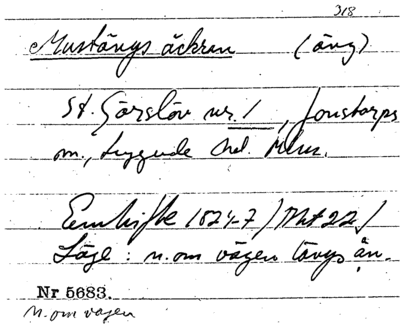 318
Mustängs åckran (äng)
St. Görslöv nr. 1, Jonstorps
m., Lyggude hd. Mlm.
Enskifte 1824-7 / Akt 22 /
Läge: n. om vägen längs ån.
Nr 5683.
n. om vägen